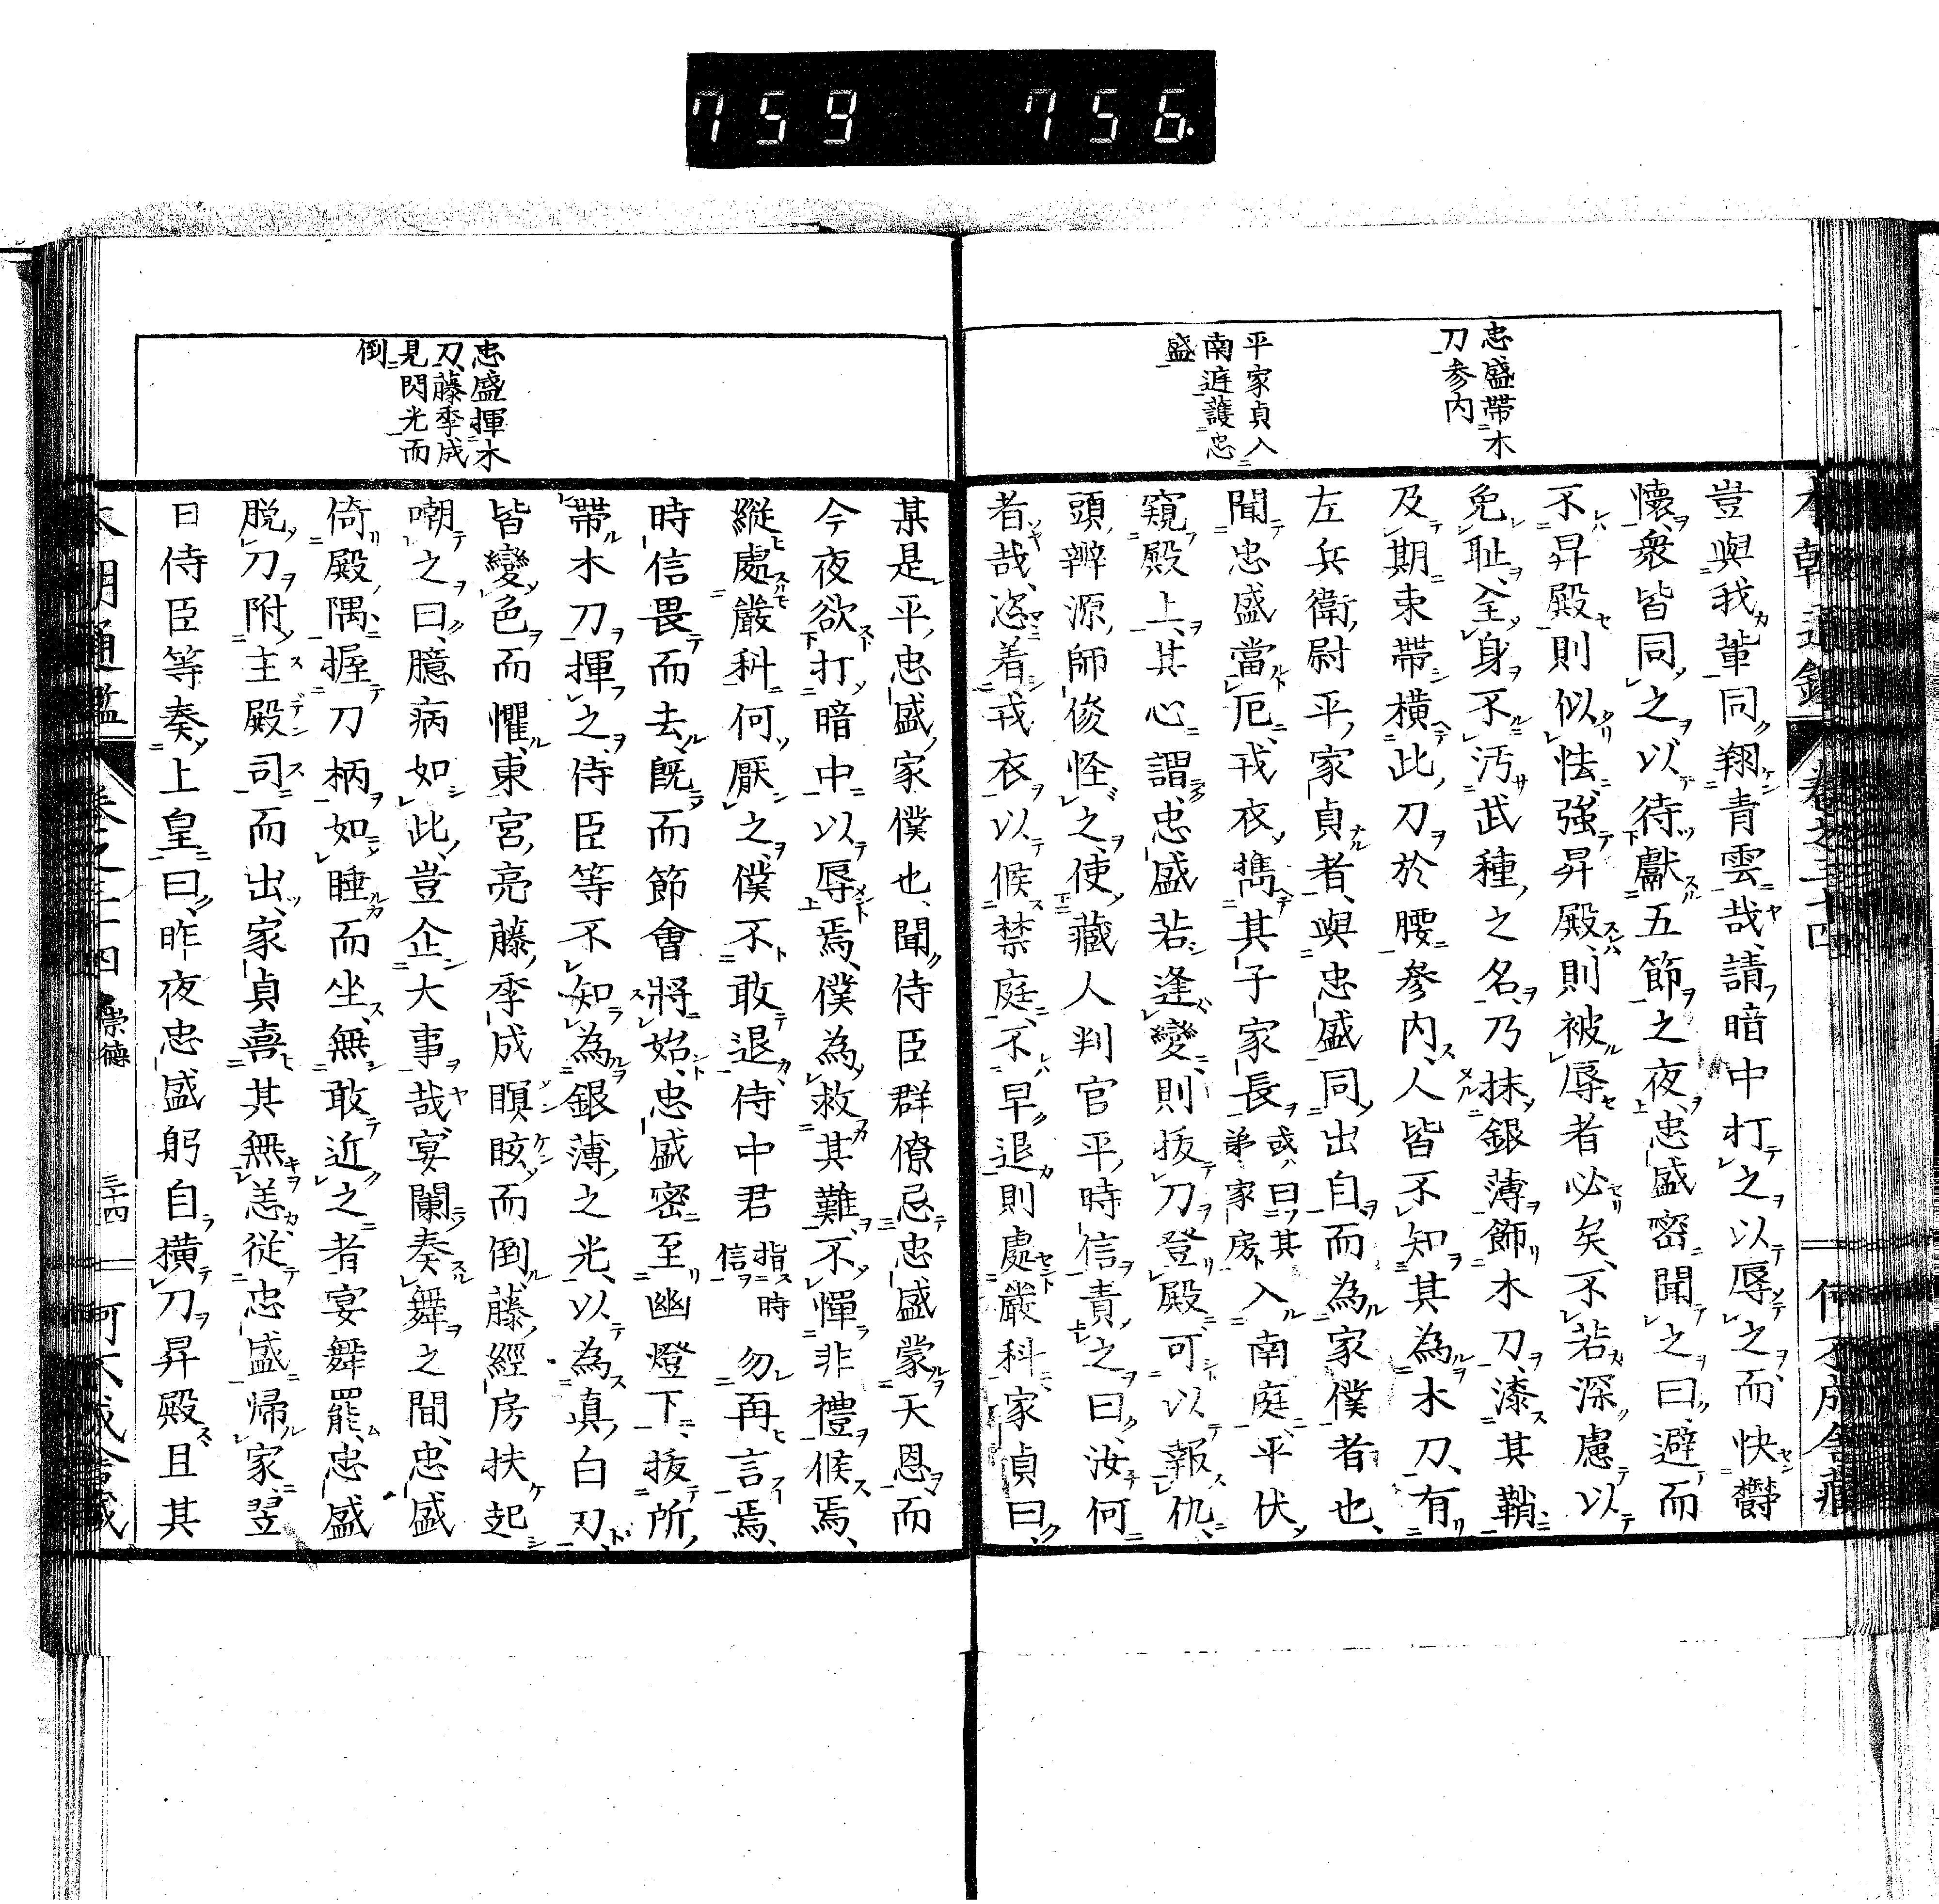 759 756.
忠盛帶木
刀参内
平家貞入
南庭護忠
盛
豈與我輩同翔青雲哉請暗中打之以辱之而快欝
懷衆皆同之以待獻五節之夜忠盛密聞之曰避而
不昇殿則似怯強昇殿則被辱者必矣不若深慮以
免耻全身不汚武種之名乃抹銀薄飾木刀漆其鞘
及期束帶橫此刀於腰參内人皆不知其為木刀有
左兵衛尉平家貞者與忠盛同出自而為家僕者也
聞忠盛當厄戎衣㩦其子家長或曰其弟家房入南庭平伏
窺殿上其心謂忠盛若逢變則拔刀登殿可以報仇
頭辨源師俊怪之使藏人判官平時信責之曰汝何
者哉恣着戎衣以候禁庭不早退則處嚴科家貞曰
忠盛揮木
刀藤季成
見閃光而
倒
某是平忠盛家僕也聞侍臣群僚忌忠盛蒙天恩而
今夜欲打暗中以辱焉僕為救其難不憚非禮候焉
縱處嚴科何厭之僕不敢退侍中君指時信勿再言焉
時信畏而去既而節會將始忠盛密至幽燈下拔所
帶木刀揮之侍臣等不知為銀薄之光以為真白刃
皆變色而懼東宮亮藤季成瞑眩而倒藤經房扶起
嘲之曰臆病如此豈企大事哉宴闌奏舞之間忠盛
倚殿隅握刀柄如睡而坐無敢近之者宴舞罷忠盛
脱刀附主殿司而出家貞喜其無恙從忠盛歸家翌
日侍臣等奏上皇曰昨夜忠盛躬自橫刀昇殿且其
本朝通鑑 卷之三十四 崇德 三十四